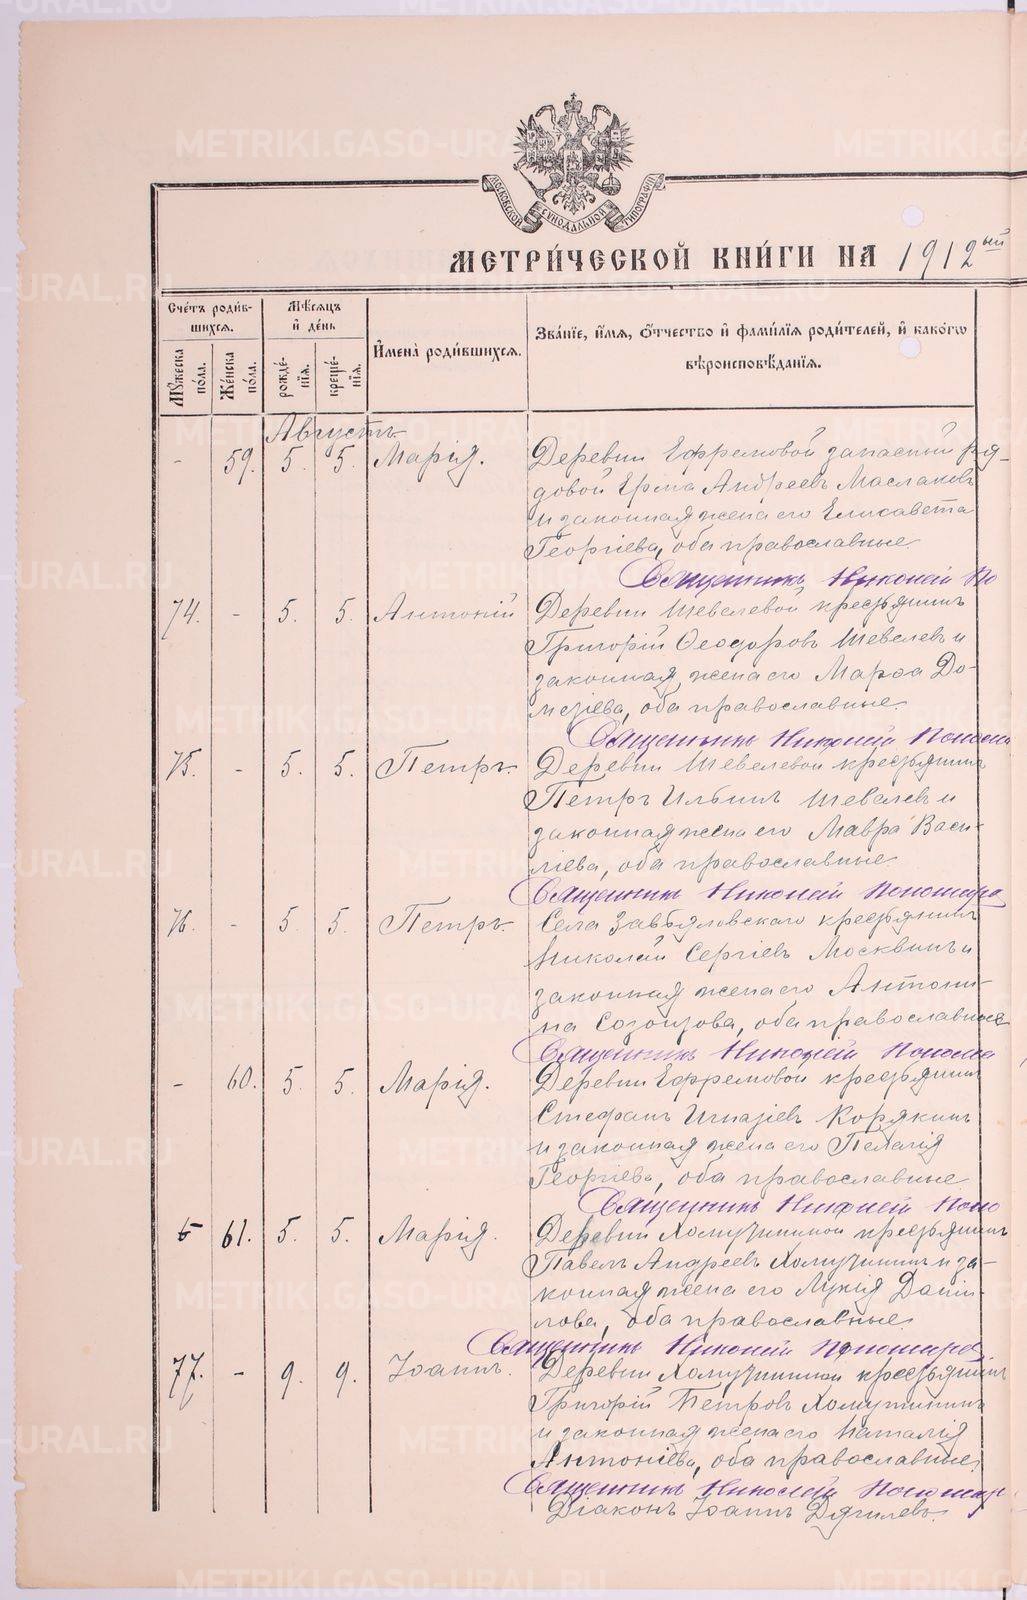 МОСКОВСКОЙ СѴНОДАЛЬНОЙ ТИПОГРАФІИ
МЕТРИ́ЧЕСКОЙ КНИ́ГИ НА 1912ый
Сче́тъ роди́вшихся.
Мѣ́сяцъ и де́нь
Имена̀ роди́вшихся.
Зва́нїе, и́мя, о́тчество и фами́лїя роди́телей, и како́гѡ вѣроисповѣ́данїя.
Мꙋ́жеска по́ла.
Же́нска по́ла.
рожде́нїя.
креще́нїя.
Августъ
- 59. 5. 5. Марія.
Деревни Ефремовой запасный ря-
довой Ерма Андреевъ Маслаковъ
и законная жена его Елисавета
Георгіева, оба православные.
Священникъ Николай По
74. - 5. 5. Антоній
Деревни Шевелевой крестьянинъ
Григорій Ѳеодоровъ Шевелевъ и
законная жена его Марѳа До-
метіева, оба православные.
Священникъ Николай Понома
75. - 5. 5. Петръ.
Деревни Шевелевой крестьянинъ
Петръ Ильинъ Шевелевъ и
законная жена его Мавра Васи-
ліева, оба православные.
Священникъ Николай Пономаре
76. - 5. 5. Петръ.
Села Завьяловскаго крестьянинъ
Николай Сергіевъ Москвинъ и
законная жена его Антони-
на Созонтова, оба православные
Священникъ Николай Понома
- 60. 5. 5. Марія.
Деревни Ефремовой крестьянинъ
Стефанъ Игнатіевъ Корякинъ
и законная жена его Пелагія
Георгіева, оба православные.
Священникъ Николай Поно
61. 5. 5. Марія.
Деревни Хомутининой крестьянинъ
Павелъ Андреевъ Хомутининъ и за-
конная жена его Лукія Даніи-
лова, оба православные.
Священникъ Николай Пономарев
77. - 9. 9. Іоаннъ.
Деревни Хомутининой крестьянинъ
Григорій Петровъ Хомутининъ
и законная жена его Наталія
Антоніева, оба православные.
Священникъ Николай Пономар
Діаконъ Іоаннъ Дягилевъ.
METRIKI.GASO-URAL.RU